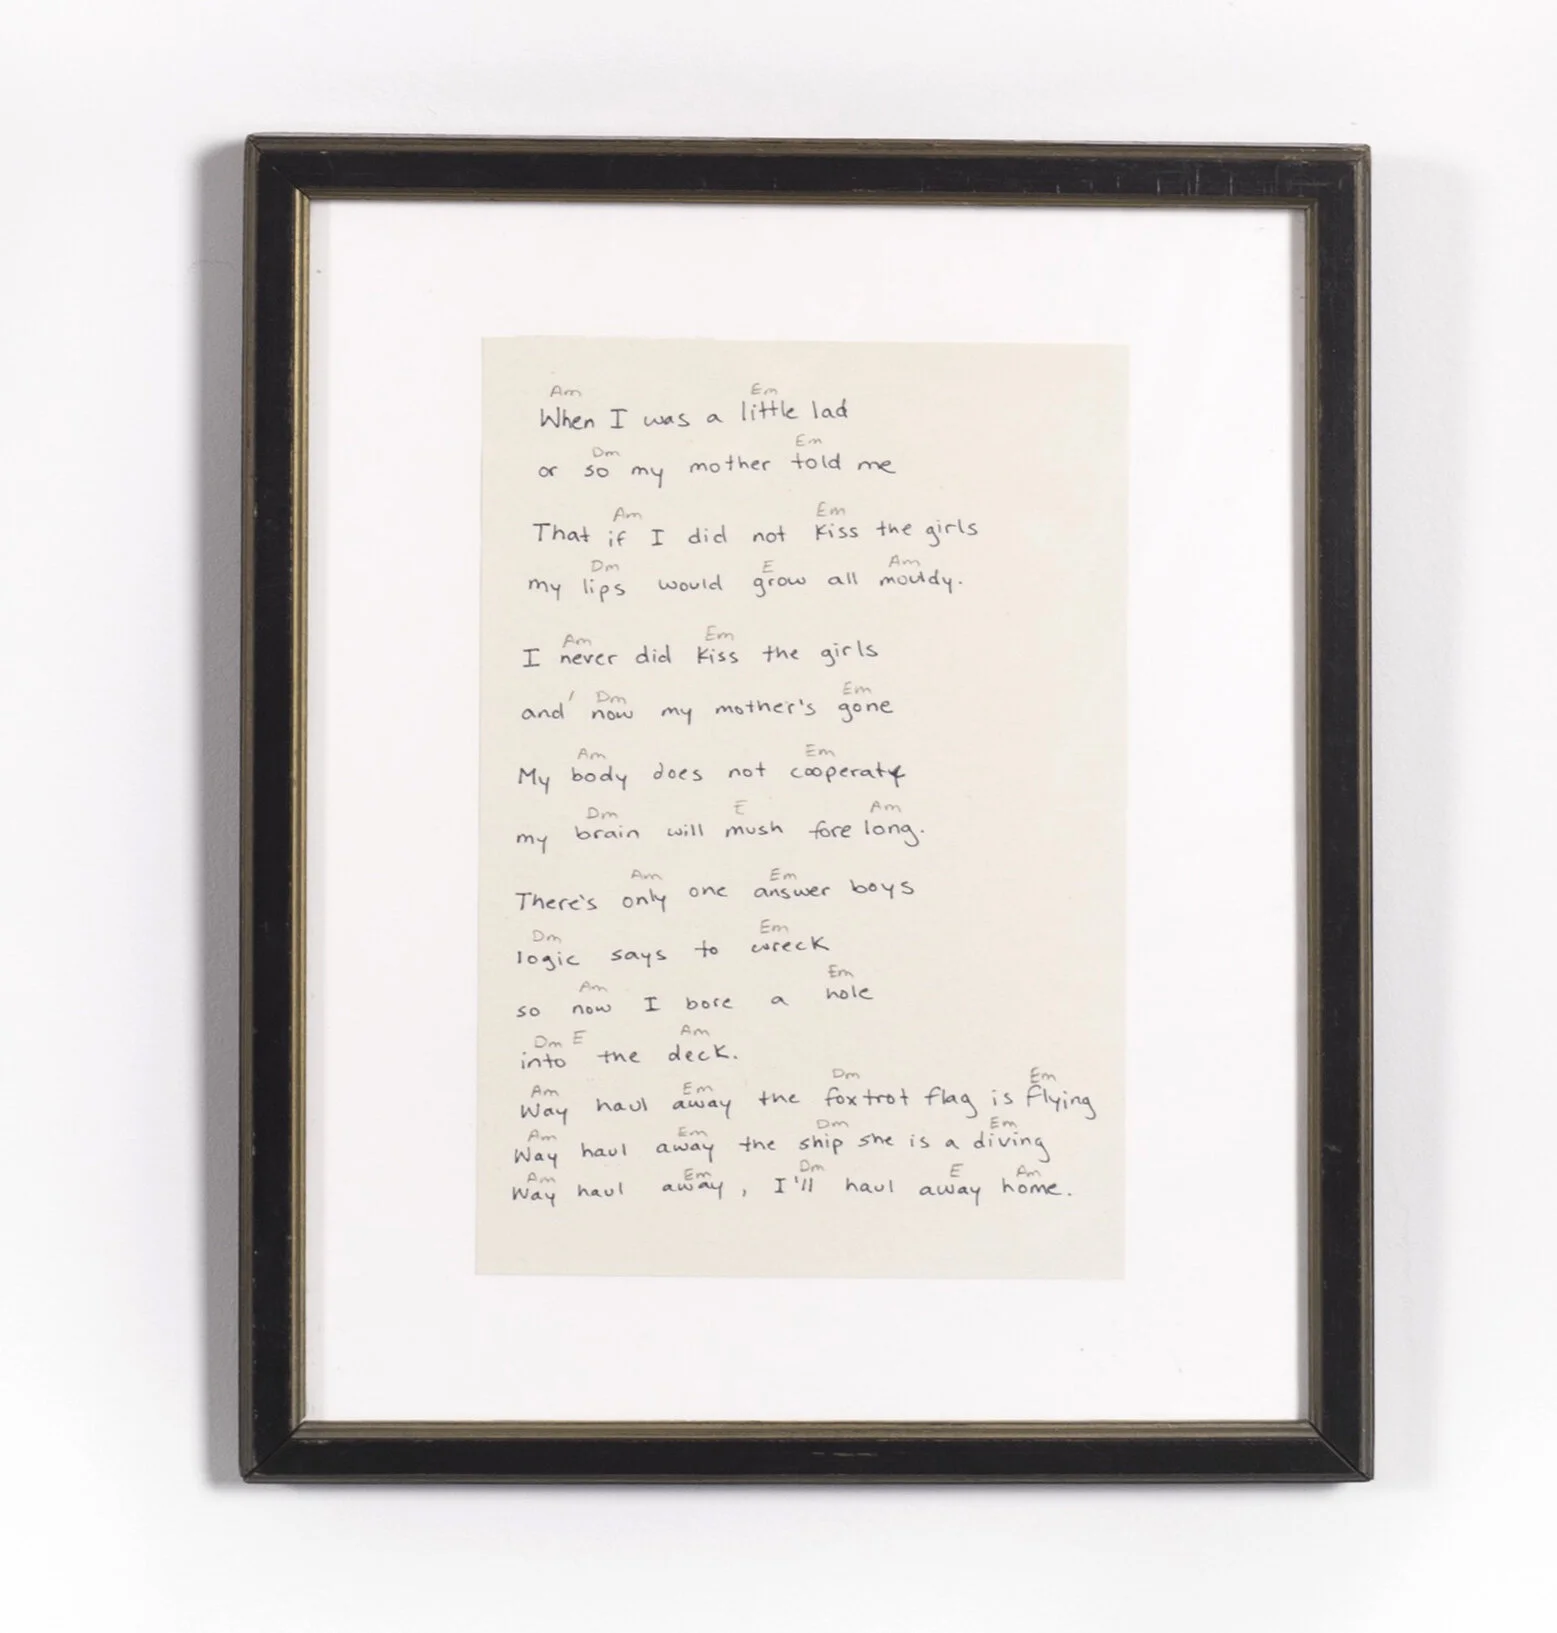 Am Em
When I was a little lad
Dm Em
or so my mother told me
Am Em
That if I did not kiss the girls
Dm E Am
my lips would grow all mouldy.
Am Em
I never did kiss the girls
Dm Em
and now my mother's gone
Am Em
My body does not cooperate
Dm E Am
my brain will mush fore long.
Am Em
There's only one answer boys
Dm Em
logic says to wreck
Am Em
so now I bore a hole
Dm E Am
into the deck.
Am Em Dm Em
Way haul away the foxtrot flag is flying
Am Em Dm Em
Way haul away the ship she is a diving
Am Em Dm E Am
Way haul away, I'll haul away home.